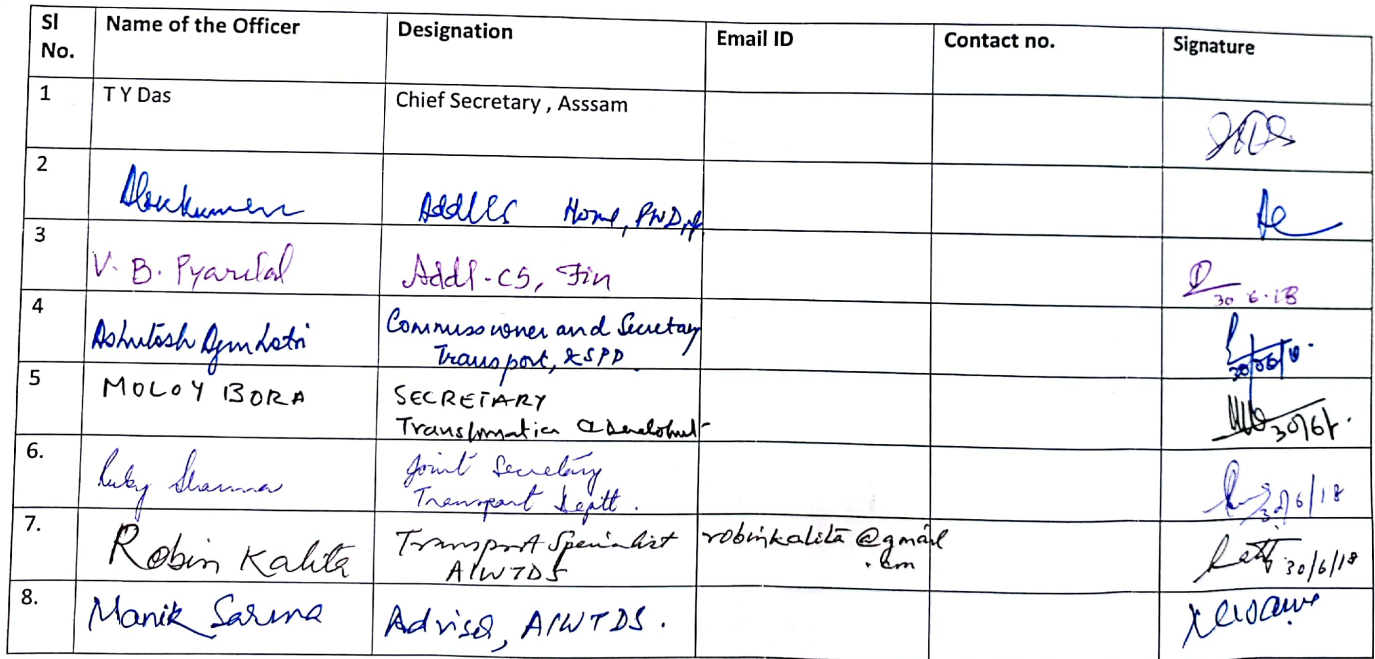 Sl No. Name of the Officer Designation Email ID Contact no. Signature
1 T Y Das Chief Secretary , Asssam
2 Home, PWD
3 V. B. Pyarelal Addl-CS, Fin 30.6.18
4 Ashutosh Agnihotri Commissioner and Secretary
Transport, & SPD 30/06/18
5 MOLOY BORA SECRETARY
Transformation & Development 30/6/
6. Ruby Sharma Joint Secretary
Transport Deptt. 30/6/18
7. Robin Kalita Transport Specialist robinkalita@gmail
AIWTDS .com 30/6/18
8. Manik Sarma Adviser, AIWTDS.